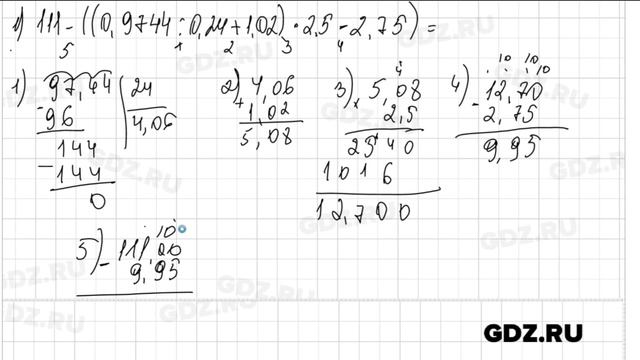 1) 111 - ((0,9744 : 0,24 + 1,02) · 2,5 - 2,75) =
5 1 2 3 4
1) 97,44 | 24
- 96
4,06
144
- 144
0
2) 4,06
+ 1,02
5,08
3) 5,08
× 2,5
2540
1016
12,700
4) 12,70
- 2,75
9,95
5) 111,00
- 9,95
GDZ.RU